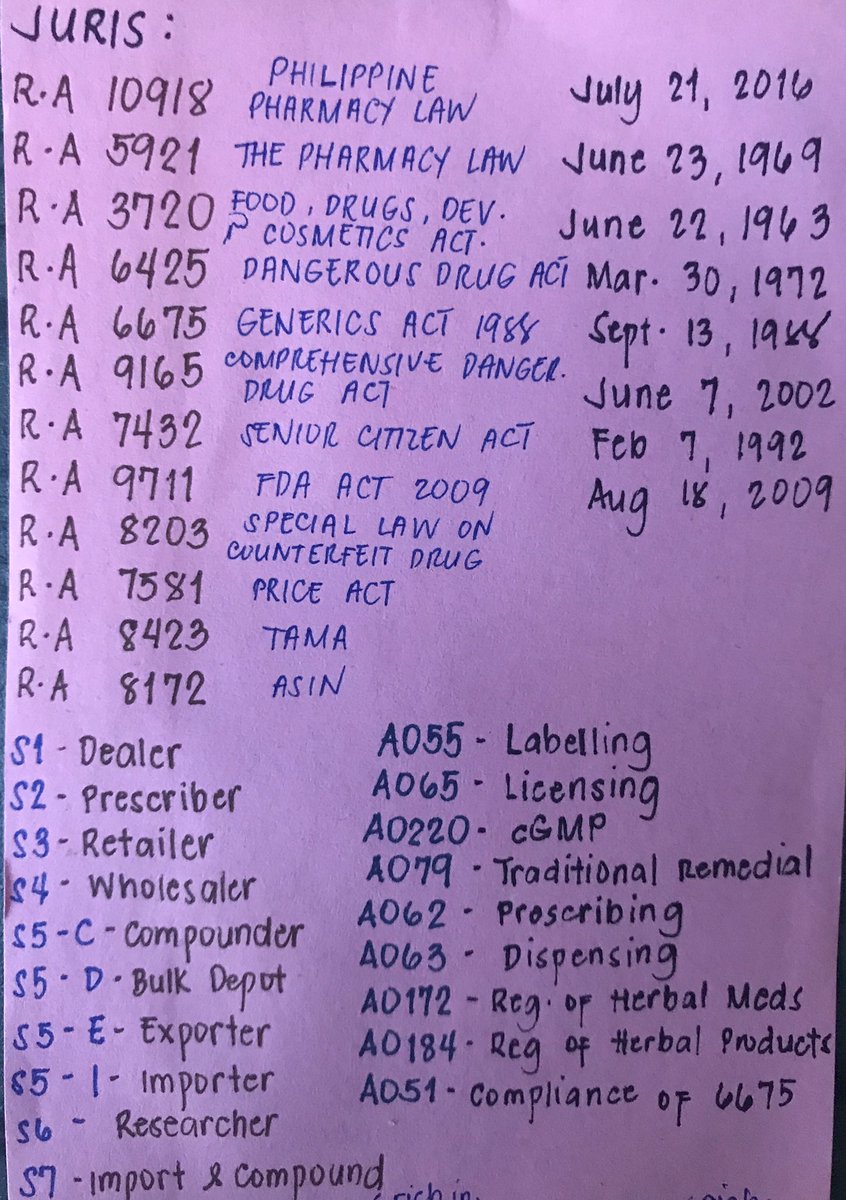 JURIS :
R.A 10918 PHILIPPINE PHARMACY LAW July 21, 2016
R.A 5921 THE PHARMACY LAW June 23, 1969
R.A 3720 FOOD, DRUGS, DEV. & COSMETICS ACT. June 22, 1963
R.A 6425 DANGEROUS DRUG ACT Mar. 30, 1972
R.A 6675 GENERICS ACT 1988 Sept. 13, 1988
R.A 9165 COMPREHENSIVE DANGER. DRUG ACT June 7, 2002
R.A 7432 SENIOR CITIZEN ACT Feb 7, 1992
R.A 9711 FDA ACT 2009 Aug 18, 2009
R.A 8203 SPECIAL LAW ON COUNTERFEIT DRUG
R.A 7581 PRICE ACT
R.A 8423 TAMA
R.A 8172 ASIN
S1 - Dealer
S2 - Prescriber
S3 - Retailer
S4 - Wholesaler
S5 - C - Compounder
S5 - D - Bulk Depot
S5 - E - Exporter
S5 - I - Importer
S6 - Researcher
S7 - Import & Compound
AO55 - Labelling
AO65 - Licensing
AO220 - cGMP
AO79 - Traditional Remedial
AO62 - Proscribing
AO63 - Dispensing
AO172 - Reg. of Herbal Meds
AO184 - Reg of Herbal Products
AO51 - Compliance of 6675
rich in